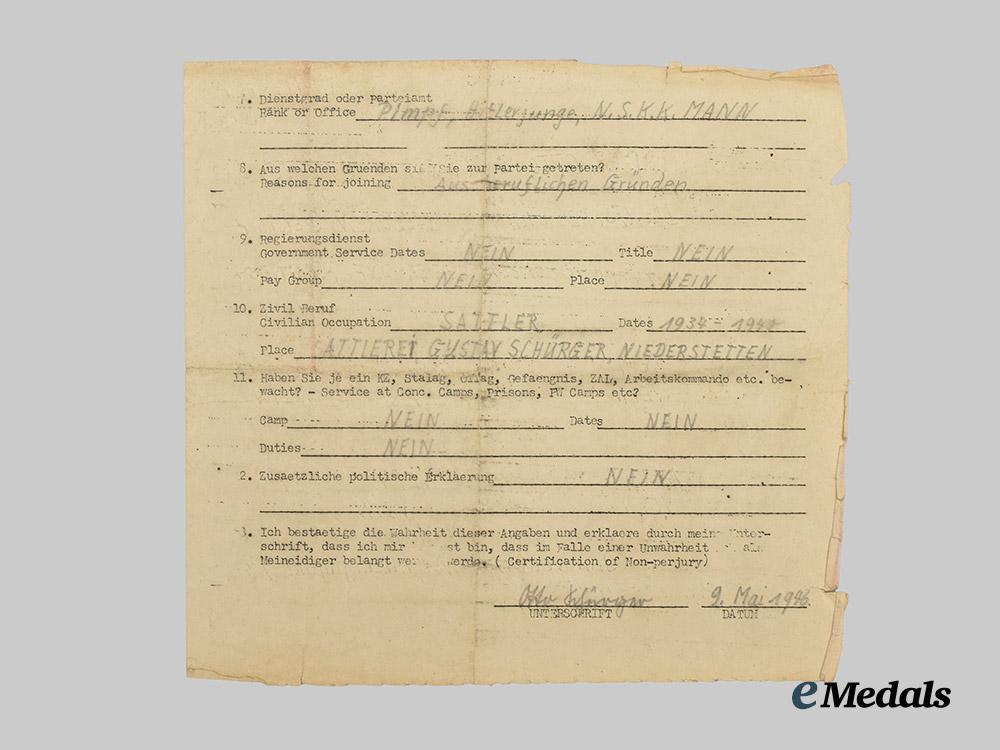 7. Dienstgrad oder Parteiamt
Rank or Office Pimpf, Hitlerjunge, N.S.K.K. MANN
8. Aus welchen Gruenden Sie zur Partei getreten?
Reasons for joining Aus beruflichen Gründen
9. Regierungsdienst
Government Service Dates NEIN Title NEIN
Pay Group NEIN Place NEIN
10. Zivil Beruf
Civilian Occupation SATTLER Dates 1934 -
Place ATTLEREI GUSTAV SCHÜRGER, NIEDERSTETTEN
11. Haben Sie je ein KZ, Stalag, Oflag, Gefaengnis, ZAL, Arbeitskommando etc. be-
wacht? - Service at Conc. Camps, Prisons, PW Camps etc?
Camp NEIN Dates NEIN
Duties NEIN
2. Zusaetzliche politische Erklaerung NEIN
3. Ich bestaetige die Wahrheit dieser Angaben und erklaere durch meine Unter-
schrift, dass ich mir st bin, dass im Falle einer Unwahrheit als
Meineidiger belangt werde. ( Certification of Non-perjury)
Otto Schürger 9. Mai 1946.
UNTERSCHRIFT DATUM
eMedals